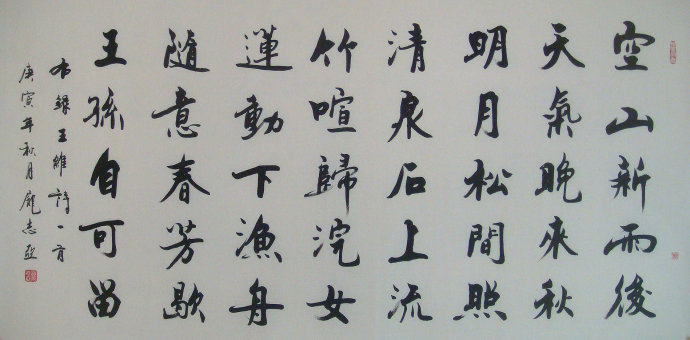 空山新雨後
天氣晚來秋
明月松間照
清泉石上流
竹喧歸浣女
蓮動下漁舟
隨意春芳歇
王孫自可留
右錄王維詩一首
庚寅年秋月龐志亞